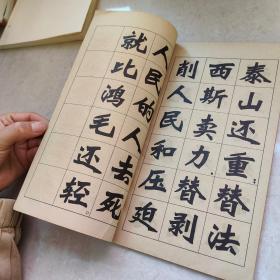 泰山还重；替法
西斯卖力，替剥
削人民和压迫
人民的人去死
就比鸿毛还轻